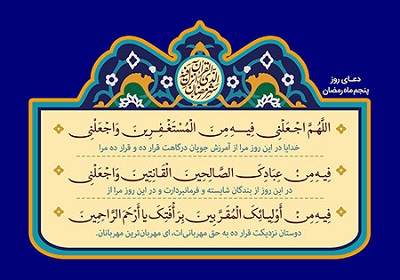 دعـای روز
پنجم ماه رمضان
اللَّهُمَّ اجْعَلْنِي فِيهِ مِنَ الْمُسْتَغْفِرِينَ وَاجْعَلْنِي
خدایا در این روز مرا از آمرزش جویان درگاهت قرار ده و قرار ده مرا
فِيهِ مِنْ عِبَادِكَ الصَّالِحِينَ الْقَانِتِينَ وَاجْعَلْنِي
در این روز از بندگان شایسته و فرمانبردارت و در این روز مرا از
فِيهِ مِنْ أَوْلِيَائِكَ الْمُقَرَّبِينَ بِرَأْفَتِكَ يَا أَرْحَمَ الرَّاحِمِينَ
دوستان نزدیکت قرار ده به حق مهربانی‌ات، ای مهربان‌ترین مهربانان.